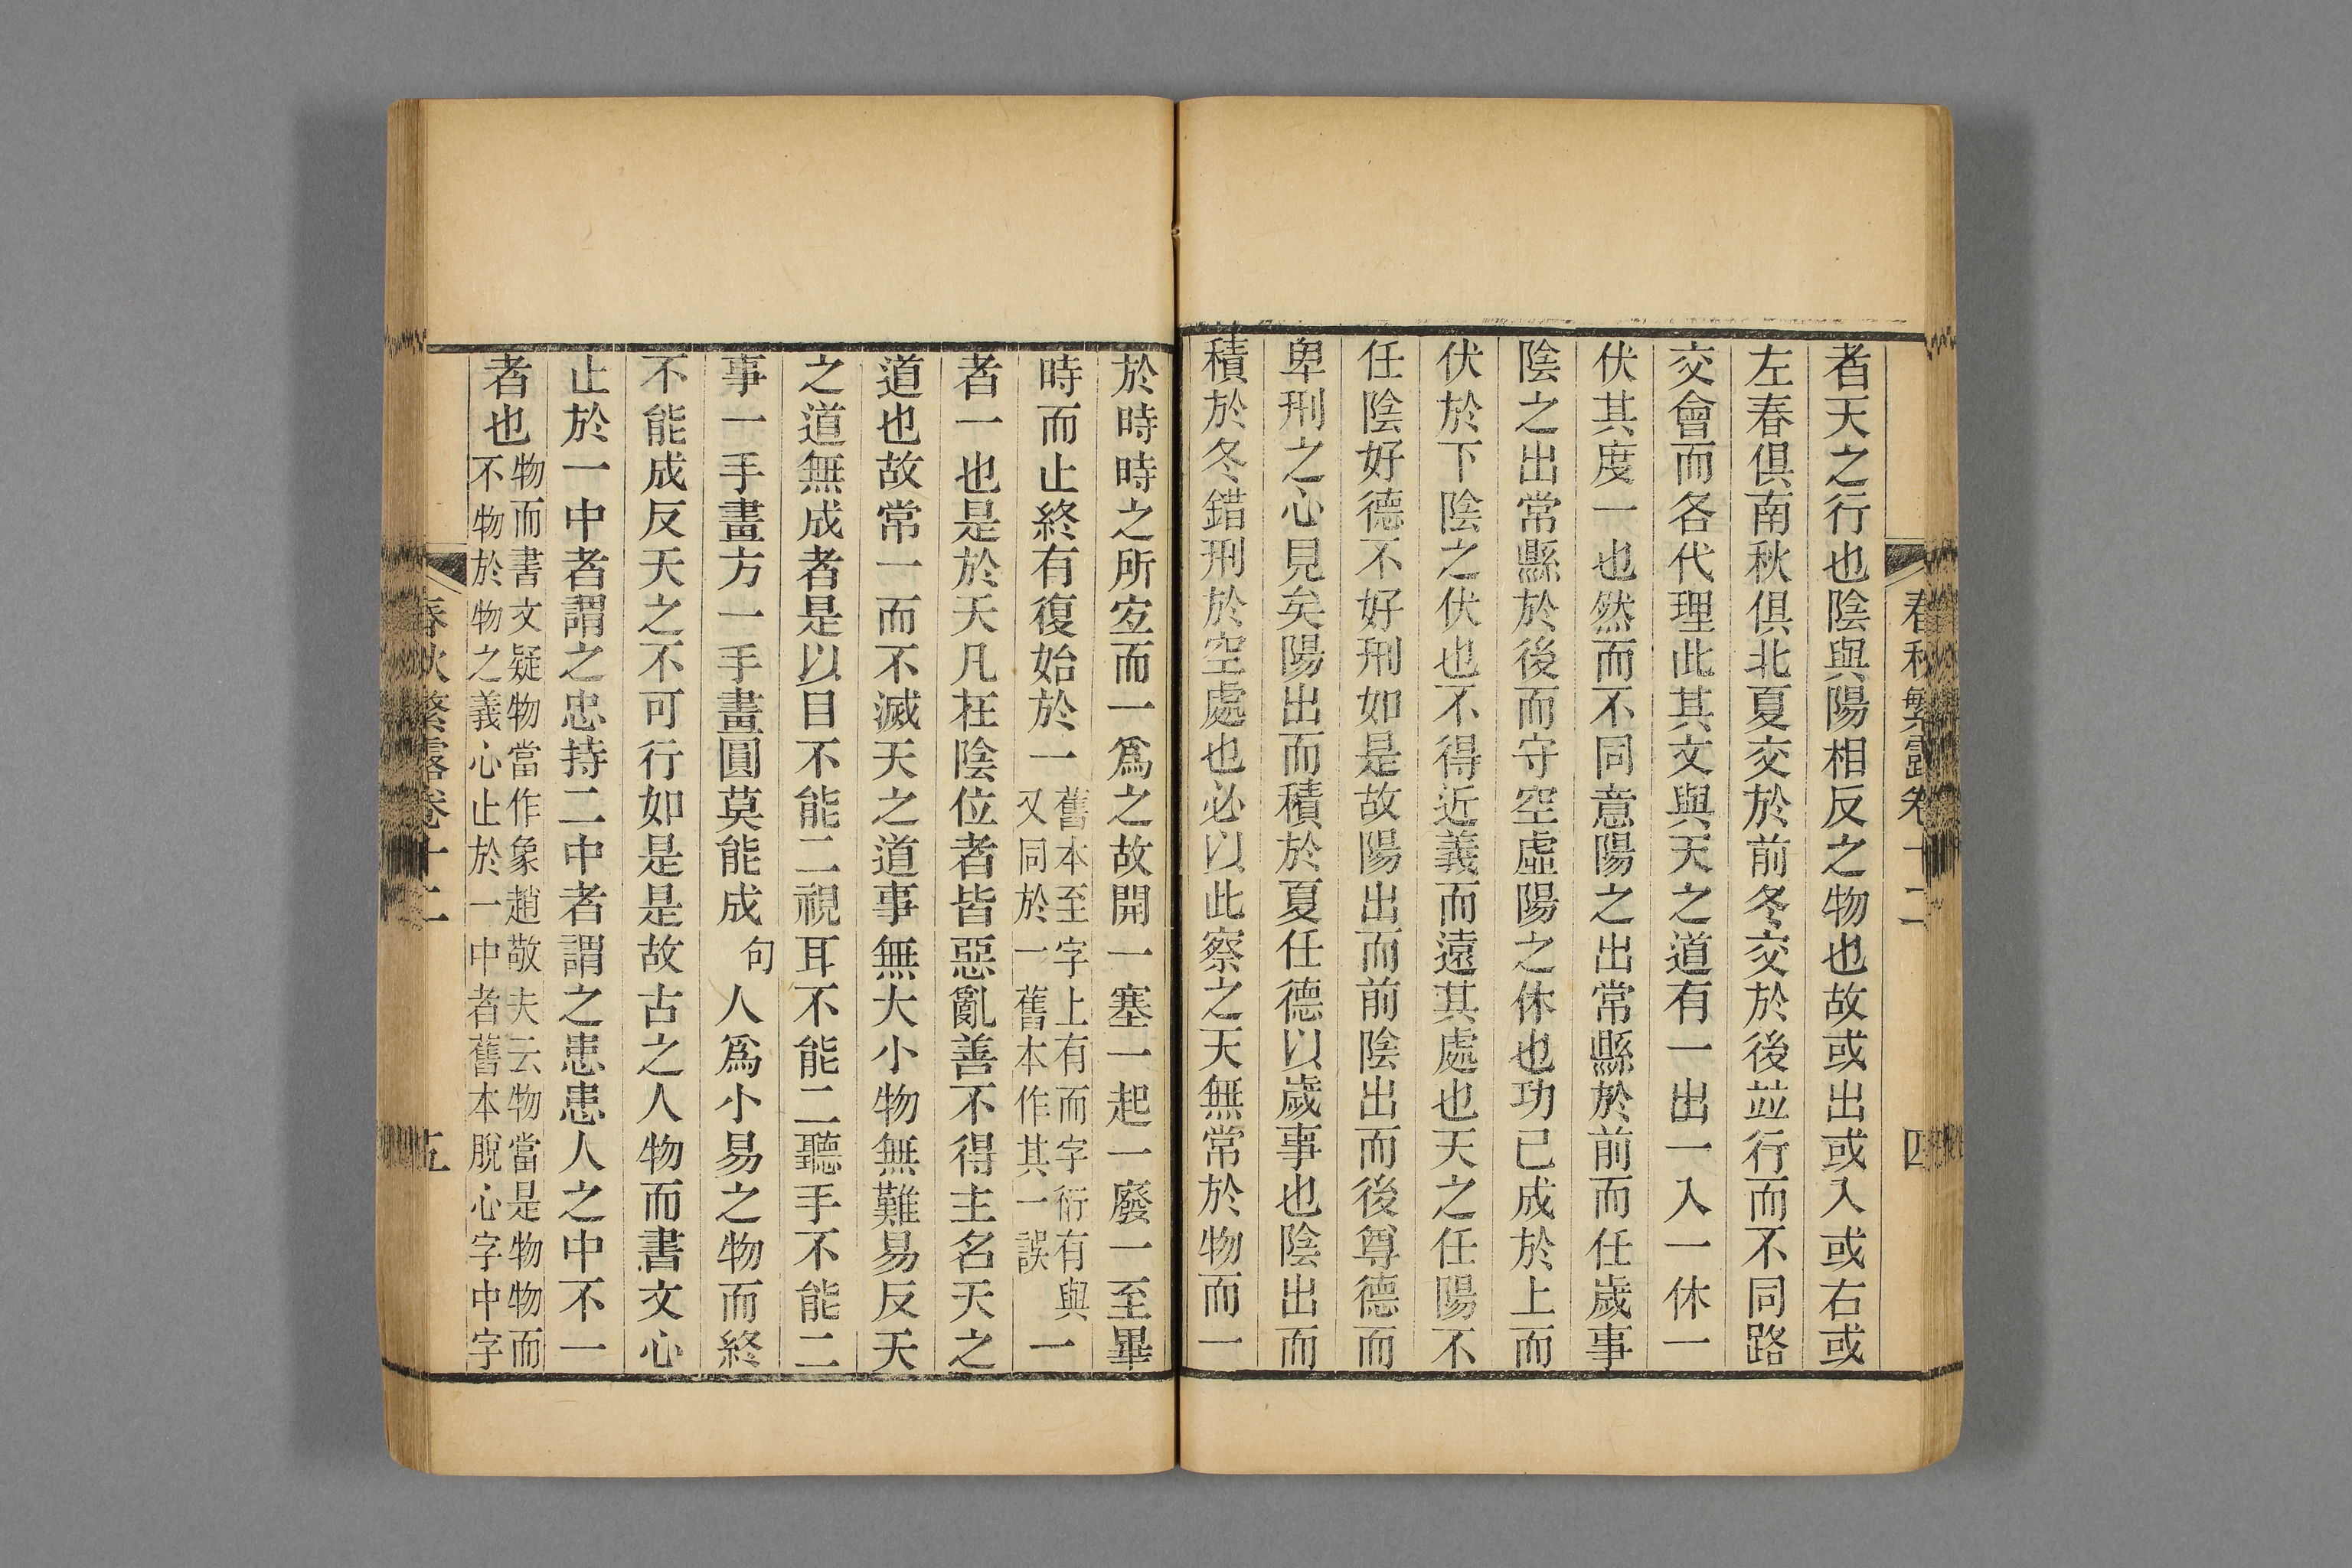 春秋繁露卷十二 四
者天之行也陰與陽相反之物也故或出或入或右或
左春俱南秋俱北夏交於前冬交於後並行而不同路
交會而各代理此其文與天之道有一出一入一休一
伏其度一也然而不同意陽之出常縣於前而任歲事
陰之出常縣於後而守空虛陽之休也功已成於上而
伏於下陰之伏也不得近義而遠其處也天之任陽不
任陰好德不好刑如是故陽出而前陰出而後尊德而
卑刑之心見矣陽出而積於夏任德以歲事也陰出而
積於冬錯刑於空處也必以此察之天無常於物而一
於時時之所宐而一爲之故開一塞一起一廢一至畢
時而止終有復始於一舊本至字上有而字衍有與又同於一舊本作其一誤一
者一也是於天凡在陰位者皆惡亂善不得主名天之
道也故常一而不滅天之道事無大小物無難易反天
之道無成者是以目不能二視耳不能二聽手不能二
事一手畫方一手畫圓莫能成句人爲小易之物而終
不能成反天之不可行如是是故古之人物而書文心
止於一中者謂之忠持二中者謂之患患人之中不一
者也物而書文疑物當作象趙敬夫云物當是物物而不物於物之義心止於一中者舊本脫心字中字
春秋繁露卷十二 五